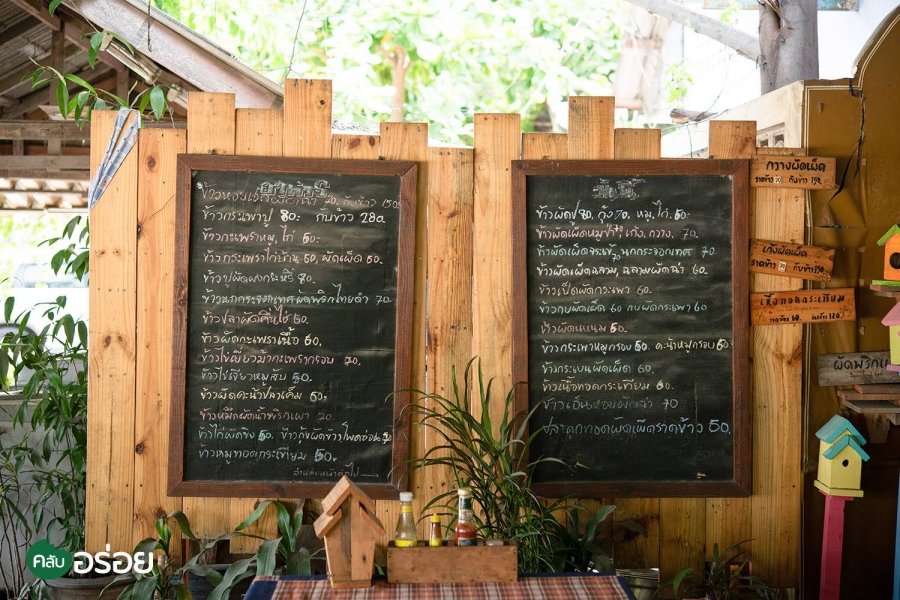 ข้าวหอยเชลล์ผัดฉ่า 70. กับข้าว 150.
ข้าวกระเพราปู 80.- กับข้าว 280.
ข้าวกระเพราหมู, ไก่ 50.-
ข้าวกระเพราไก่บ้าน 50, ผัดเผ็ด 50.
ข้าวปูผัดผงกะหรี่ 80.
ข้าวนกกระจอกเทศผัดพริกไทยดำ 70
ข้าวปลาผัดคื่นไช่ 60.
ข้าวผัดกะเพราเนื้อ 60.
ข้าวไข่เยี่ยวม้ากะเพรากรอบ 70.
ข้าวไข่เจียวหมูสับ 50.
ข้าวผัดคะน้าปลาเค็ม 50.
ข้าวหมึกผัดน้ำพริกเผา 70.
ข้าวไก่ผัดขิง 50. ข้าวกุ้งผัดข้าวโพดอ่อน 70
ข้าวหมูทอดกระเทียม 50.
ข้าวผัดปู 80, กุ้ง 70, หมู, ไก่. 50.-
ข้าวผัดเผ็ดหมูป่า, เก้ง, กวาง. 70.
ข้าวผัดเผ็ดจระเข้, นกกระจอกเทศ 70
ข้าวผัดเผ็ดฉลาม, ฉลามผัดฉ่า 60.
ข้าวเป็ดผัดกระเพรา 60.
ข้าวกบผัดเผ็ด 60 กบผัดกระเพรา 60
ข้าวผัดแหนม 50.
ข้าวกระเพราหมูกรอบ 50. คะน้าหมูกรอบ 50
ข้าวกระเบนผัดเผ็ด 60.
ข้าวเนื้อทอดกระเทียม 60.
ข้าวเอ็นหอยผัดฉ่า 70
ปลาดุกทอดผัดเผ็ดราดข้าว 50.
กวางผัดเผ็ด
ราดข้าว 70 กับข้าว 150
เก้งผัดเผ็ด
ราดข้าว 70 กับข้าว 150
เนื้อทอดกระเทียม
ราดข้าว 60. กับข้าว 120.
ผัดพริก
คลับ อร่อย